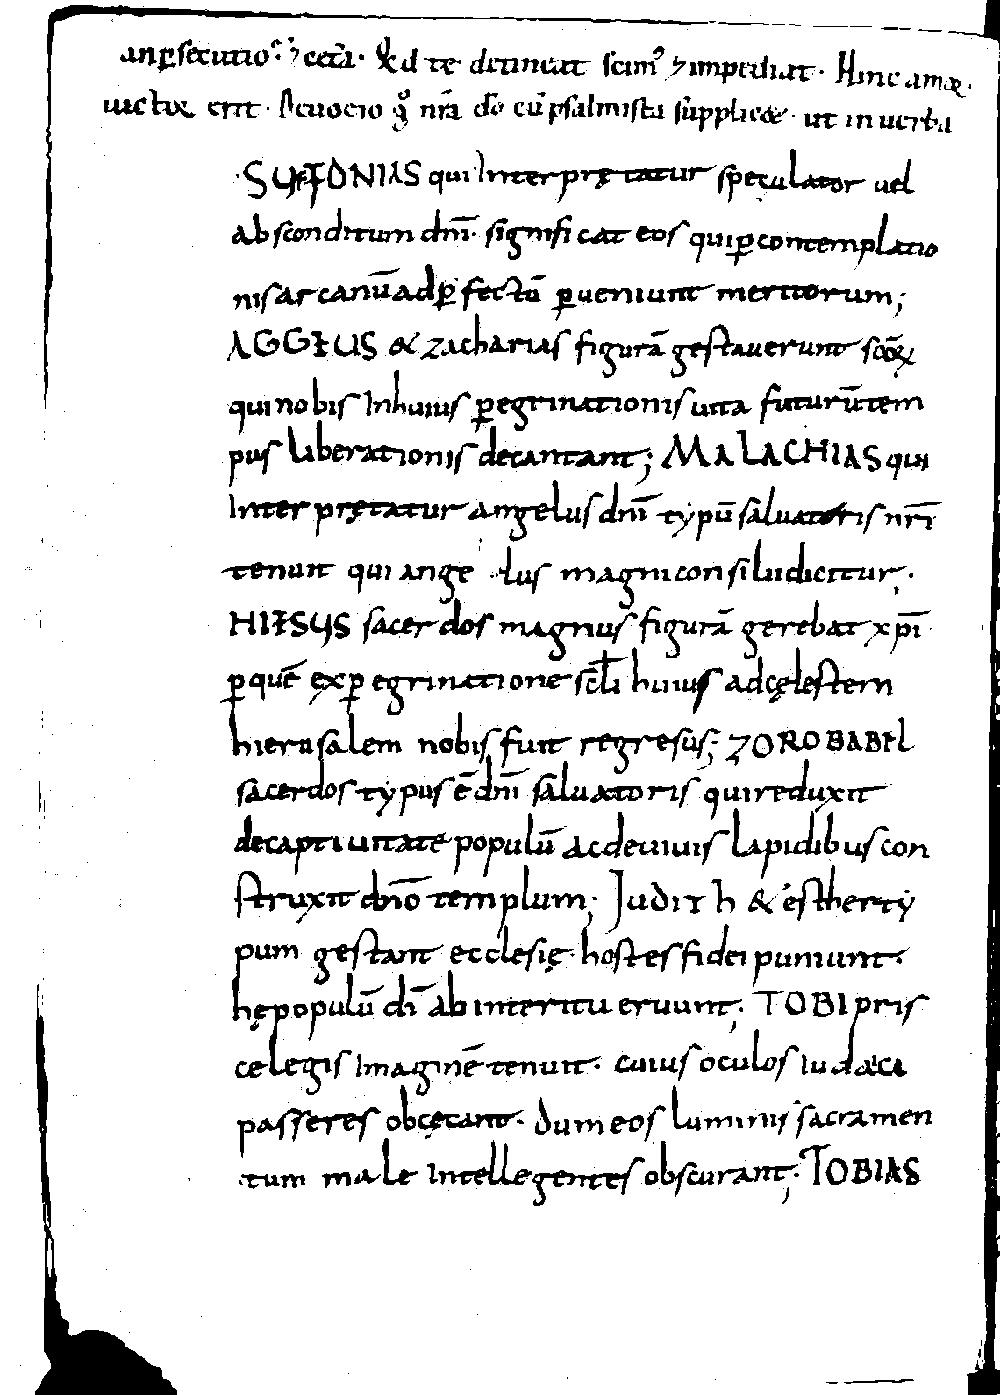 an p̱secutio? ⁊ cetā. Qd te detineat scim᷒ ⁊ impediat. Hinc amor
uictix erit. Deuoero g̊ nr̄a dō cū psalmista supplicæ. ut in uerba
SYFONIAS qui Interprętatur speculator uel
absconditum dnī. significat eos qui ꝑcontemplatio
nis arcanū ad ꝑfectū ꝑueniunt meritorum;
AGGEUS & zacharias figurā gestauerunt scōꝝ
qui nobis Inhuius ꝑegrinationis uita futurū tem
pus liberationis decantant; MALACHIAS qui
Interprętatur angelus dnī typū saluatoris nrī
tenuit qui ange lus magni consilii dicitur;
HIESUS sacerdos magnus figurā gerebat xpī
ꝑ quē ex ꝑegrinatione sc̄li huius ad cęlestem
hierusalem nobis fuit regressus; ZOROBABEL
sacerdos typus ē dnī saluatoris qui reduxit
de captiuitate populū ac de uiuis lapidibus con
struxit dnō templum; Judith & esther ty
pum gestant ecclesię. hostes fidei puniunt.
hę populū dī ab interitu eruunt; TOBI pris
ce legis Imaginē tenuit. cuius oculos iudaei
passeres obcęcant. dum eos luminis sacramen
tum male Intellegentes obscurant; TOBIAS